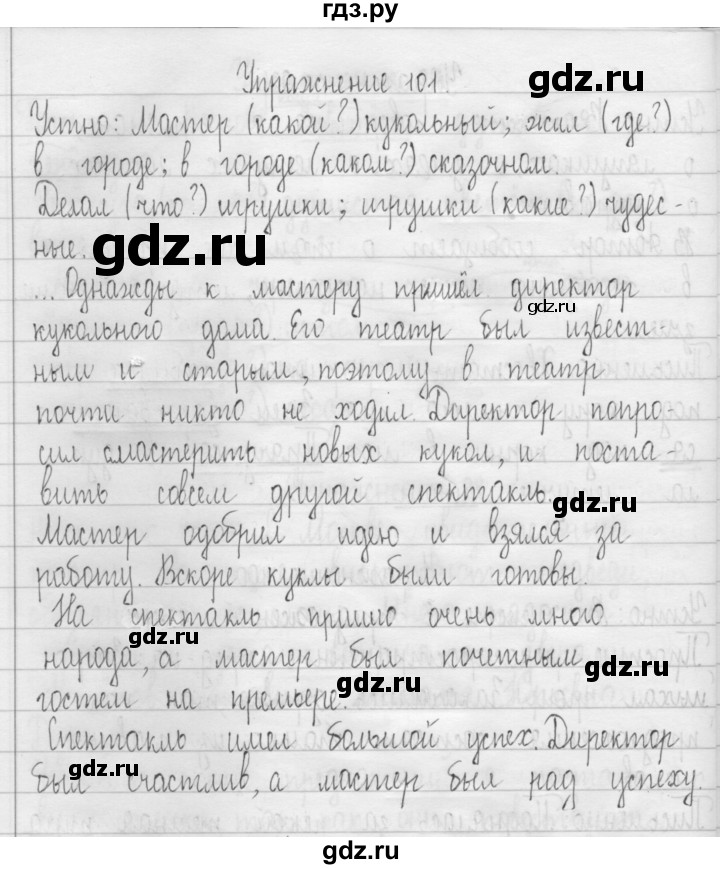 гдз.ру
Упражнение 101.
gdz.ru
Устно: Мастер (какой?) кукольный; жил (где?)
в городе; в городе (каком?) сказочном.
Делал (что?) игрушки; игрушки (какие?) чудес-
ные.
gdz.ru
... Однажды к мастеру пришёл директор
gdz.ru
кукольного дома. Его театр был извест-
ным и старым, поэтому в театр
почти никто не ходил. Директор попро-
сил смастерить новых кукол, и поста-
вить совсем другой спектакль.
gdz.ru
Мастер одобрил идею и взялся за
работу. Вскоре куклы были готовы.
На спектакль пришло очень много
gdz.ru
народа, а мастер был почетным
гостем на премьере.
gdz.ru
Спектакль имел большой успех. Директор
gdz.ru
был счастлив, а мастер был рад успеху.
gdz.ru